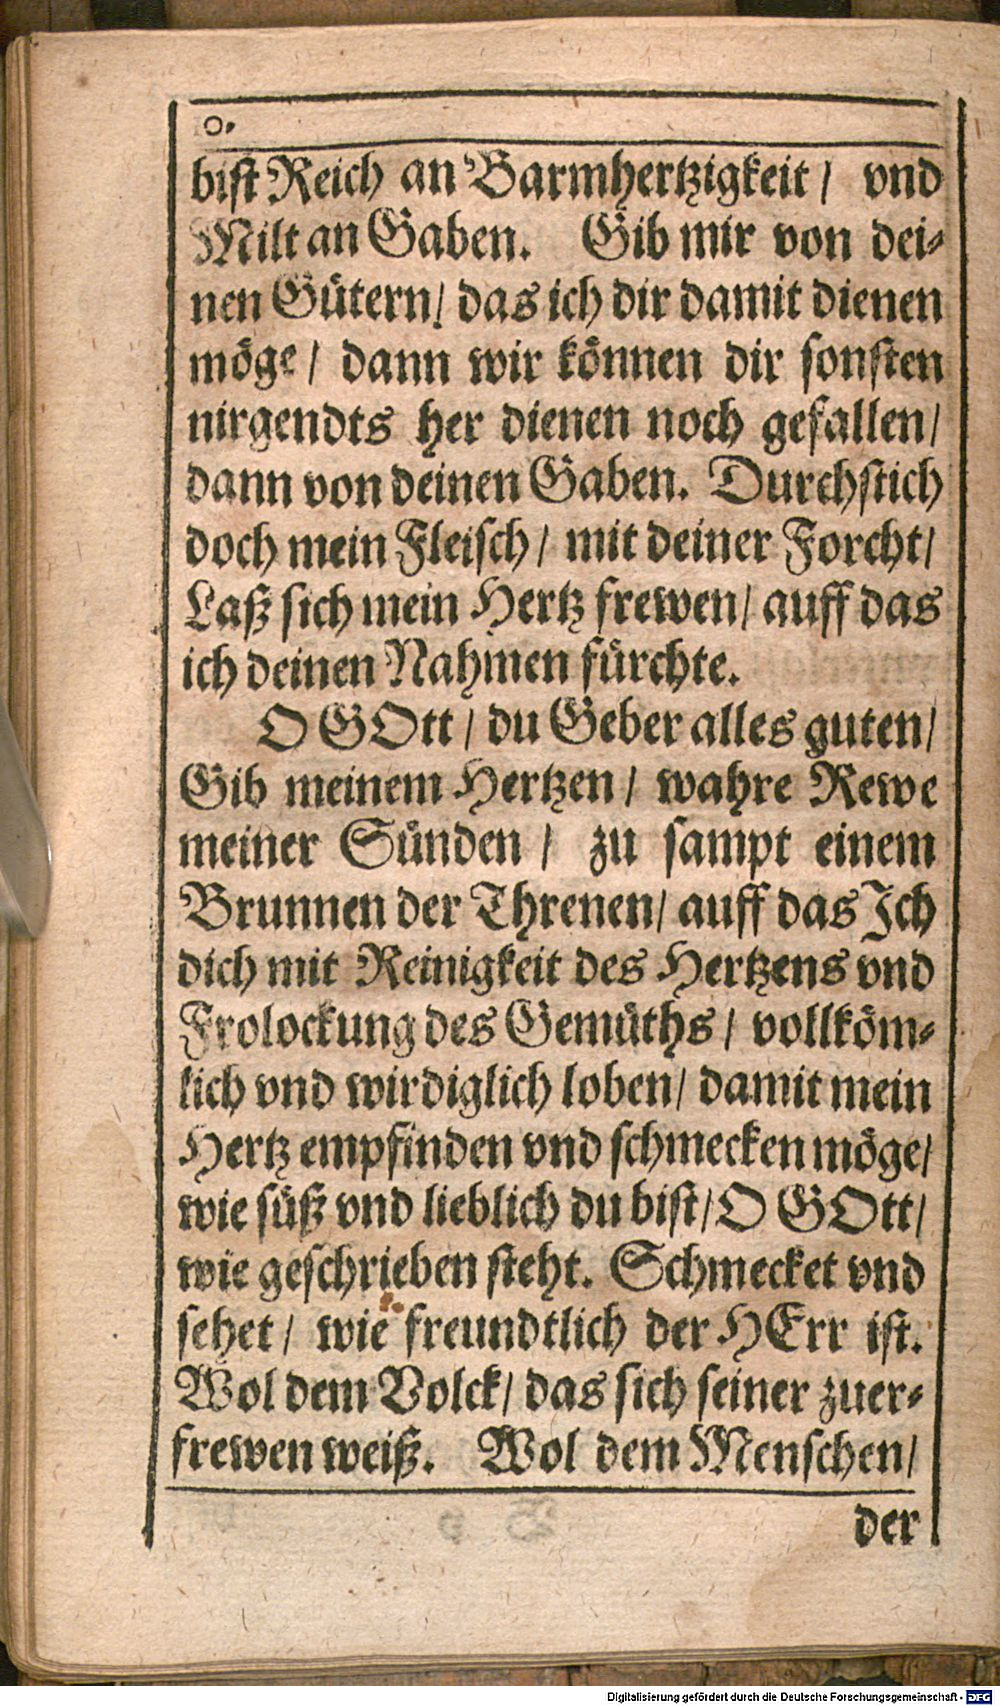 o.
bist Reich an Barmhertzigkeit / vnd
Milt an Gaben. Gib mir von dei-
nen Gütern / das ich dir damit dienen
möge / dann wir können dir sonsten
nirgendts her dienen noch gefallen /
dann von deinen Gaben. Durchstich
doch mein Fleisch / mit deiner Forcht /
Laß sich mein Hertz frewen / auff das
ich deinen Nahmen fürchte.
O GOtt / du Geber alles guten /
Gib meinem Hertzen / wahre Rewe
meiner Sünden / zu sampt einem
Brunnen der Threnen / auff das Ich
dich mit Reinigkeit des Hertzens vnd
Frolockung des Gemüths / vollköm-
lich vnd wirdiglich loben / damit mein
Hertz empfinden vnd schmecken möge /
wie süß vnd lieblich du bist / O GOtt /
wie geschrieben steht. Schmecket vnd
sehet / wie freundtlich der HErr ist.
Wol dem Volck / das sich seiner zuer-
frewen weiß. Wol dem Menschen /
der
Digitalisierung gefördert durch die Deutsche Forschungsgemeinschaft - DFG